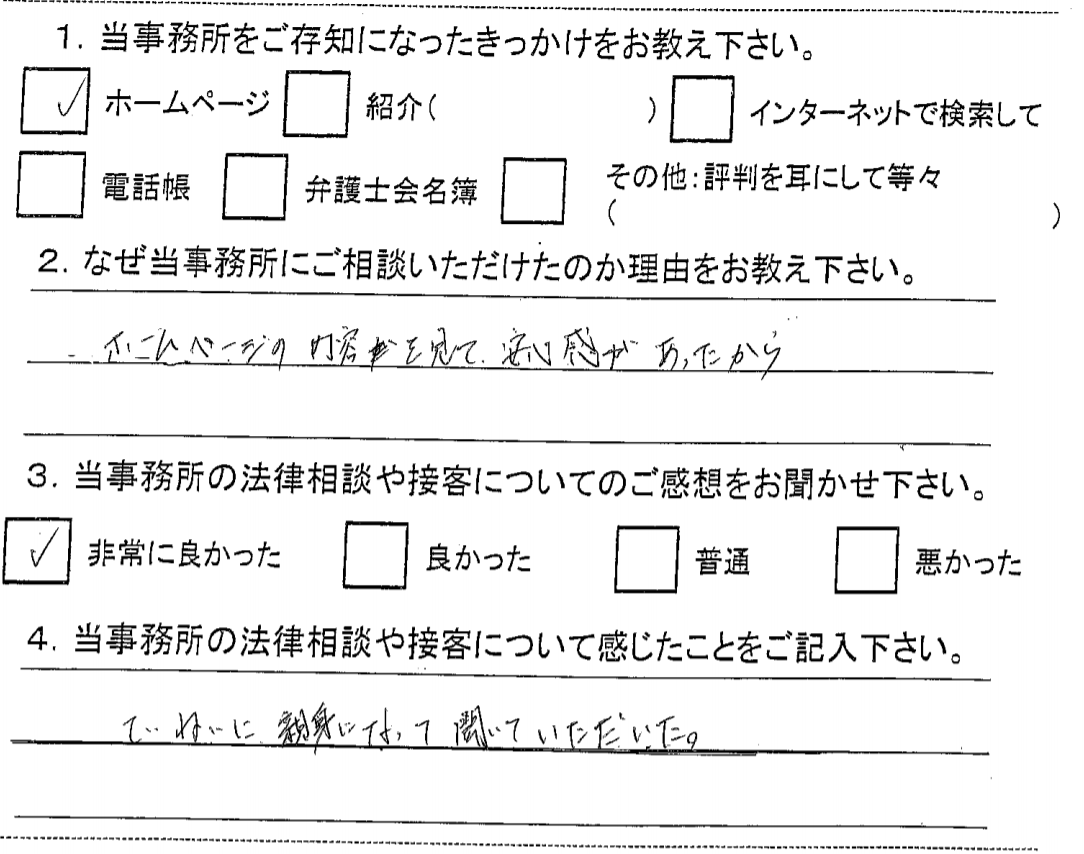 1. 当事務所をご存知になったきっかけをお教え下さい。
✓ ホームページ □ 紹介( ) □ インターネットで検索して
□ 電話帳 □ 弁護士会名簿 □ その他:評判を耳にして等々
( )
2. なぜ当事務所にご相談いただけたのか理由をお教え下さい。
ホームページの内容を見て、安心感があったから
3. 当事務所の法律相談や接客についてのご感想をお聞かせ下さい。
✓ 非常に良かった □ 良かった □ 普通 □ 悪かった
4. 当事務所の法律相談や接客について感じたことをご記入下さい。
ていねいに親身になって聞いていただいた。